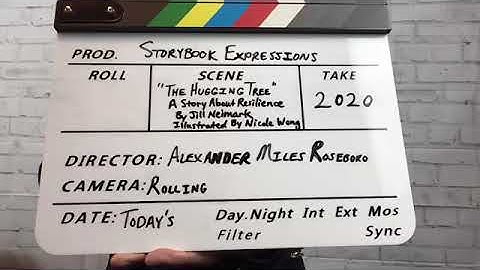 PROD. STORYBOOK EXPRESSIONS
ROLL SCENE TAKE
"THE HUGGING TREE"
A Story About Resilience
By Jill Neimark
Illustrated By Nicole Wong
2020
DIRECTOR: ALEXANDER MILES ROSEBORO
CAMERA: ROLLING
DATE: TODAY'S Day.Night Int Ext Mos
Filter Sync